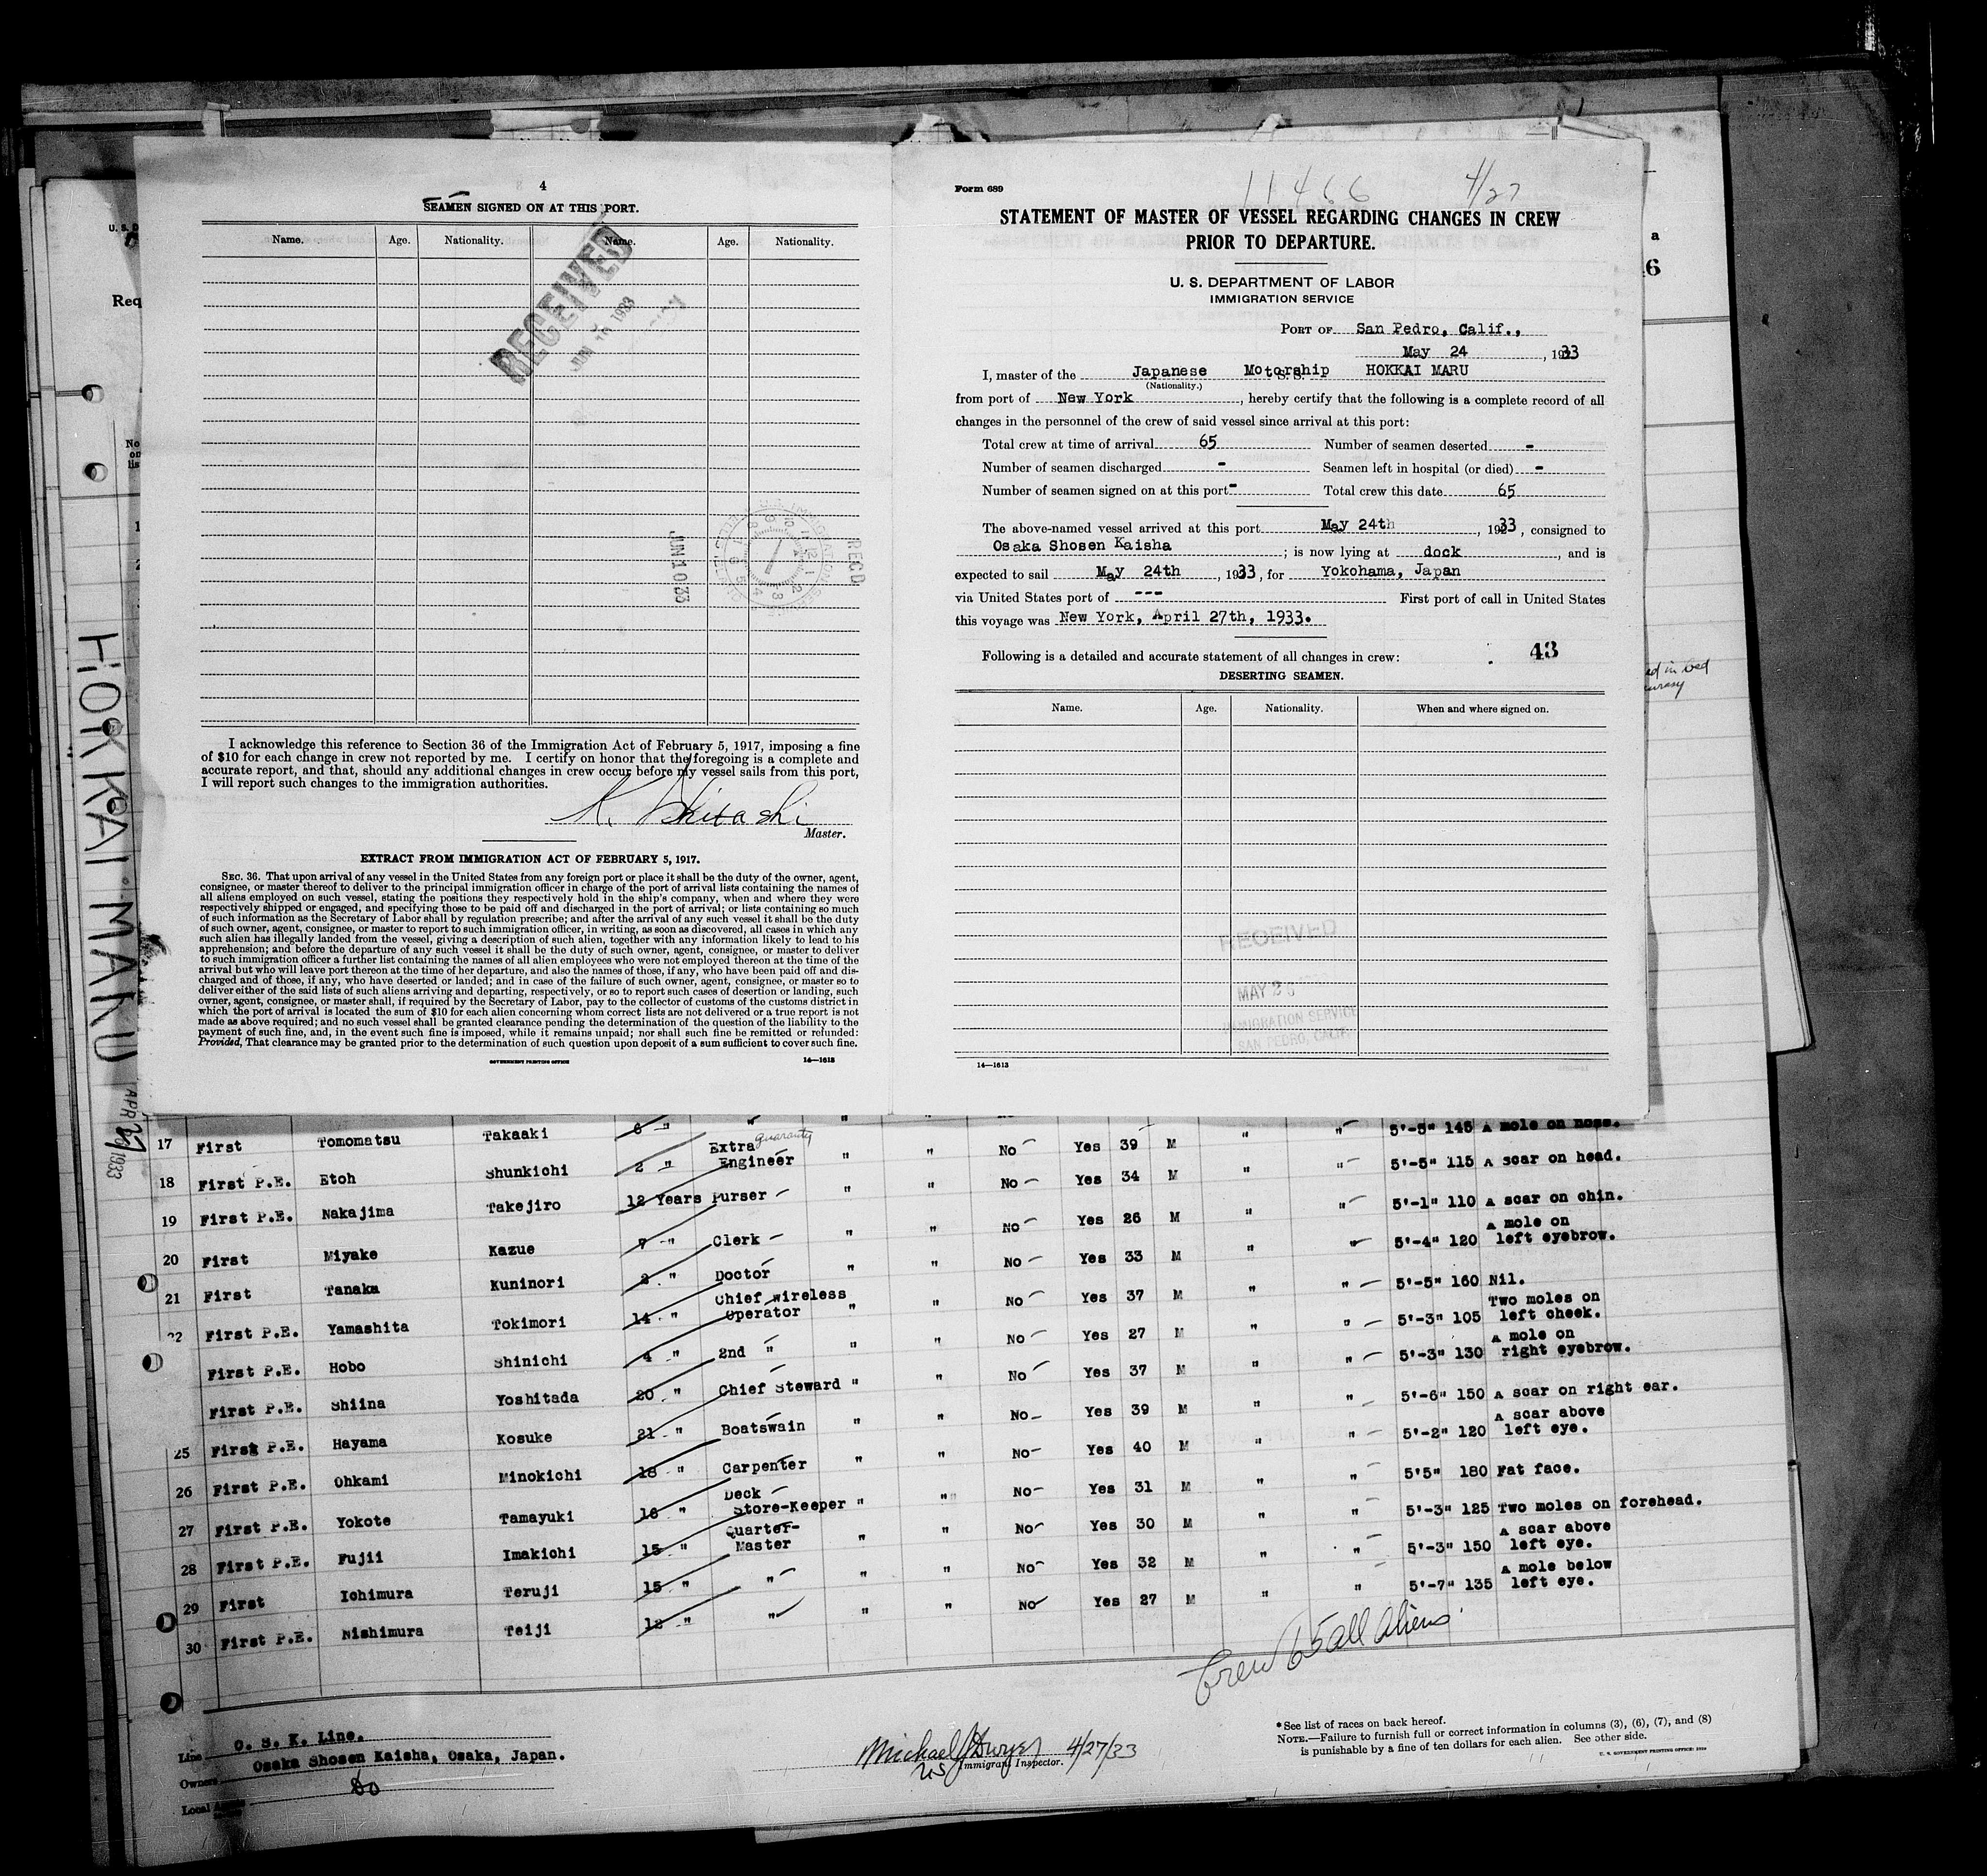 4
SEAMEN SIGNED ON AT THIS PORT.
Name. Age. Nationality. Name. Age. Nationality.
RECEIVED
JUN 1933
JUN 10 33
REC'D
I acknowledge this reference to Section 36 of the Immigration Act of February 5, 1917, imposing a fine
of $10 for each change in crew not reported by me. I certify on honor that the foregoing is a complete and
accurate report, and that, should any additional changes in crew occur before my vessel sails from this port,
I will report such changes to the immigration authorities.
Master.
EXTRACT FROM IMMIGRATION ACT OF FEBRUARY 5, 1917.
SEC. 36. That upon arrival of any vessel in the United States from any foreign port or place it shall be the duty of the owner, agent,
consignee, or master thereof to deliver to the principal immigration officer in charge of the port of arrival lists containing the names of
all aliens employed on such vessel, stating the positions they respectively hold in the ship's company, when and where they were
respectively shipped or engaged, and specifying those to be paid off and discharged in the port of arrival; or lists containing so much
of such information as the Secretary of Labor shall by regulation prescribe; and after the arrival of any such vessel it shall be the duty
of such owner, agent, consignee, or master to report to such immigration officer, in writing, as soon as discovered, all cases in which any
such alien has illegally landed from the vessel, giving a description of such alien, together with any information likely to lead to his
apprehension; and before the departure of any such vessel it shall be the duty of such owner, agent, consignee, or master to deliver
to such immigration officer a further list containing the names of all alien employees who were not employed thereon at the time of the
arrival but who will leave port thereon at the time of her departure, and also the names of those, if any, who have been paid off and dis-
charged and of those, if any, who have deserted or landed; and in case of the failure of such owner, agent, consignee, or master so to
deliver either of the said lists of such aliens arriving and departing, respectively, or so to report such cases of desertion or landing, such
owner, agent, consignee, or master shall, if required by the Secretary of Labor, pay to the collector of customs of the customs district in
which the port of arrival is located the sum of $10 for each alien concerning whom correct lists are not delivered or a true report is not
made as above required; and no such vessel shall be granted clearance pending the determination of the question of the liability to the
payment of such fine, and, in the event such fine is imposed, while it remains unpaid; nor shall such fine be remitted or refunded:
Provided, That clearance may be granted prior to the determination of such question upon deposit of a sum sufficient to cover such fine.
GOVERNMENT PRINTING OFFICE 14—1613
Form 689 11466 4/27
STATEMENT OF MASTER OF VESSEL REGARDING CHANGES IN CREW
PRIOR TO DEPARTURE.
U. S. DEPARTMENT OF LABOR
IMMIGRATION SERVICE
PORT OF San Pedro, Calif.,
May 24, 1933
I, master of the Japanese Motorship HOKKAI MARU
(Nationality.)
from port of New York, hereby certify that the following is a complete record of all
changes in the personnel of the crew of said vessel since arrival at this port:
Total crew at time of arrival 65 Number of seamen deserted -
Number of seamen discharged - Seamen left in hospital (or died) -
Number of seamen signed on at this port - Total crew this date 65
The above-named vessel arrived at this port May 24th, 1933, consigned to
Osaka Shosen Kaisha; is now lying at dock, and is
expected to sail May 24th, 1933, for Yokohama, Japan
via United States port of --- First port of call in United States
this voyage was New York, April 27th, 1933.
Following is a detailed and accurate statement of all changes in crew: 43
DESERTING SEAMEN.
Name. Age. Nationality. When and where signed on.
RECEIVED
MAY 25
IMMIGRATION SERVICE
SAN PEDRO, CALIF.
14—1613
HOKKAI MARU
APR 27 1933
17 First Tomomatsu Takaaki 6 " Extra guaranty Engineer " " No Yes 39 M " " 5'-5" 145 A mole on nose.
18 First P.E. Etoh Shunkichi 2 " " " No Yes 34 M " " 5'-5" 115 A scar on head.
19 First P.E. Nakajima Takejiro 12 Years Purser " " No Yes 26 M " " 5'-1" 110 A scar on chin.
20 First Miyake Kazue 7 " Clerk " " No Yes 33 M " " 5'-4" 120 A mole on left eyebrow.
21 First Tanaka Kuninori 2 " Doctor " " No Yes 37 M " " 5'-5" 160 Nil.
22 First P.E. Yamashita Tokimori 14 " Chief wireless Operator " " No Yes 27 M " " 5'-3" 105 Two moles on left cheek.
First P.E. Hobo Shinichi 4 " 2nd " " " No Yes 37 M " " 5'-3" 130 A mole on right eyebrow.
First P.E. Shiina Yoshitada 20 " Chief Steward " " No Yes 39 M " " 5'-6" 150 A scar on right ear.
25 First P.E. Hayama Kosuke 21 " Boatswain " " No Yes 40 M " " 5'-2" 120 A scar above left eye.
26 First P.E. Ohkami Minokichi 18 " Carpenter " " No Yes 31 M " " 5'5" 180 Fat face.
27 First P.E. Yokote Tamayuki 16 " Deck Store-Keeper " " No Yes 30 M " " 5'-3" 125 Two moles on forehead.
28 First P.E. Fujii Imakichi 15 " Quarter-Master " " No Yes 32 M " " 5'-3" 150 A scar above left eye.
29 First Ichimura Teruji 15 " " " " No Yes 27 M " " 5'-7" 135 A mole below left eye.
30 First P.E. Nishimura Teiji 12 " "
Crew 65 all Aliens.
Line O. S. K. Line.
Owners Osaka Shosen Kaisha, Osaka, Japan.
Local Agents
Michael J Dwyer 4/27/33
Immigrant Inspector.
*See list of races on back hereof.
NOTE.—Failure to furnish full or correct information in columns (3), (6), (7), and (8)
is punishable by a fine of ten dollars for each alien. See other side.